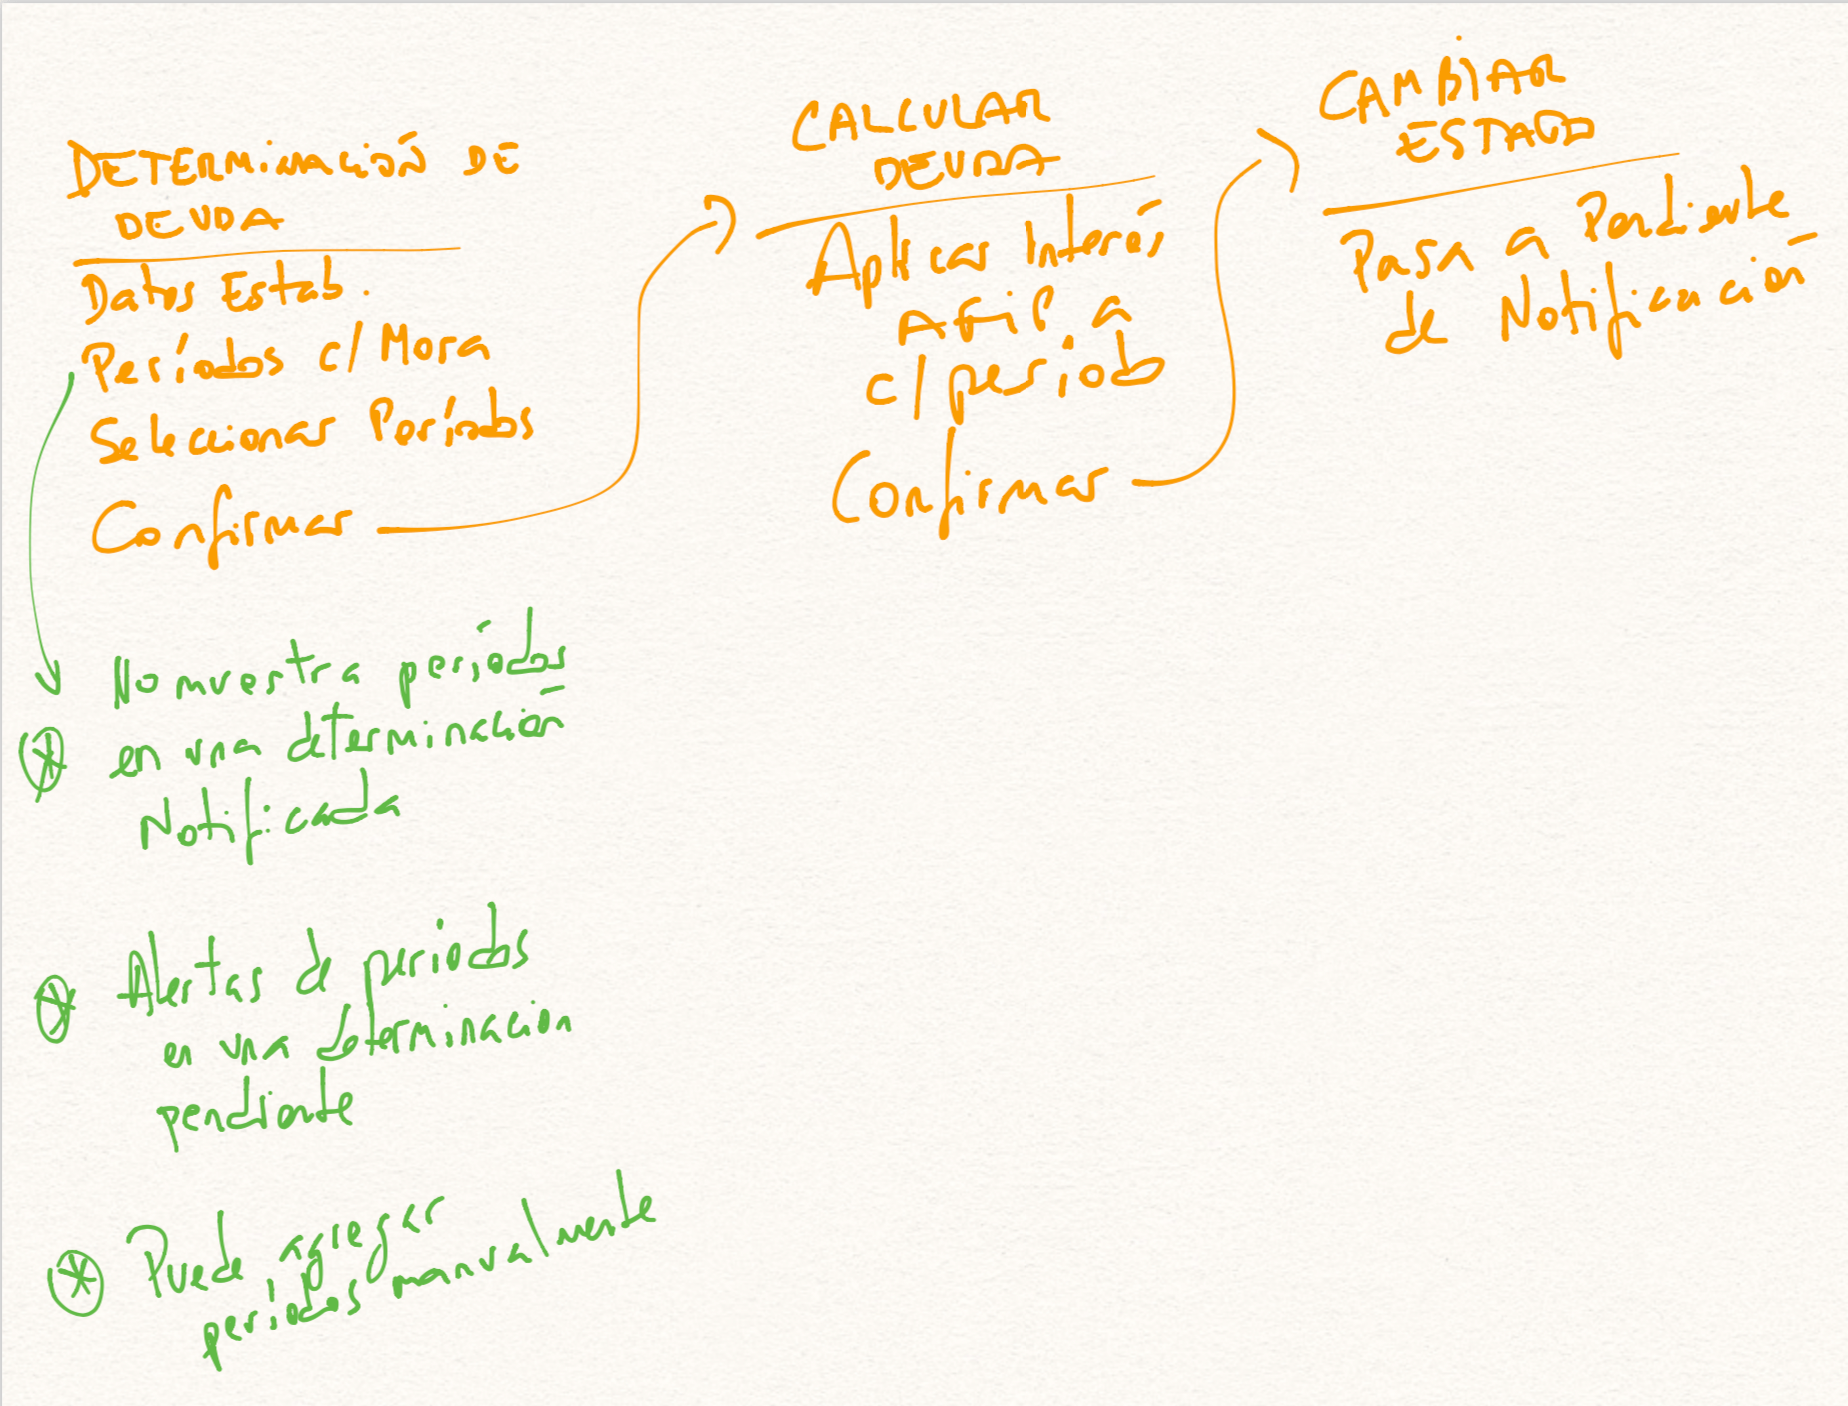 DETERMINACIÓN DE
DEUDA
Datos Estab.
Períodos c/ Mora
Seleccionar Períodos
Confirmar
CALCULAR
DEUDA
Aplicar Interés
AFIP a
c/ período
Confirmar
CAMBIAR
ESTADO
Pasa a Pendiente
de Notificación
No muestra períodos
en una determinación
Notificada
Alertas de periodos
en una determinacion
pendiente
Puede agregar
períodos manualmente